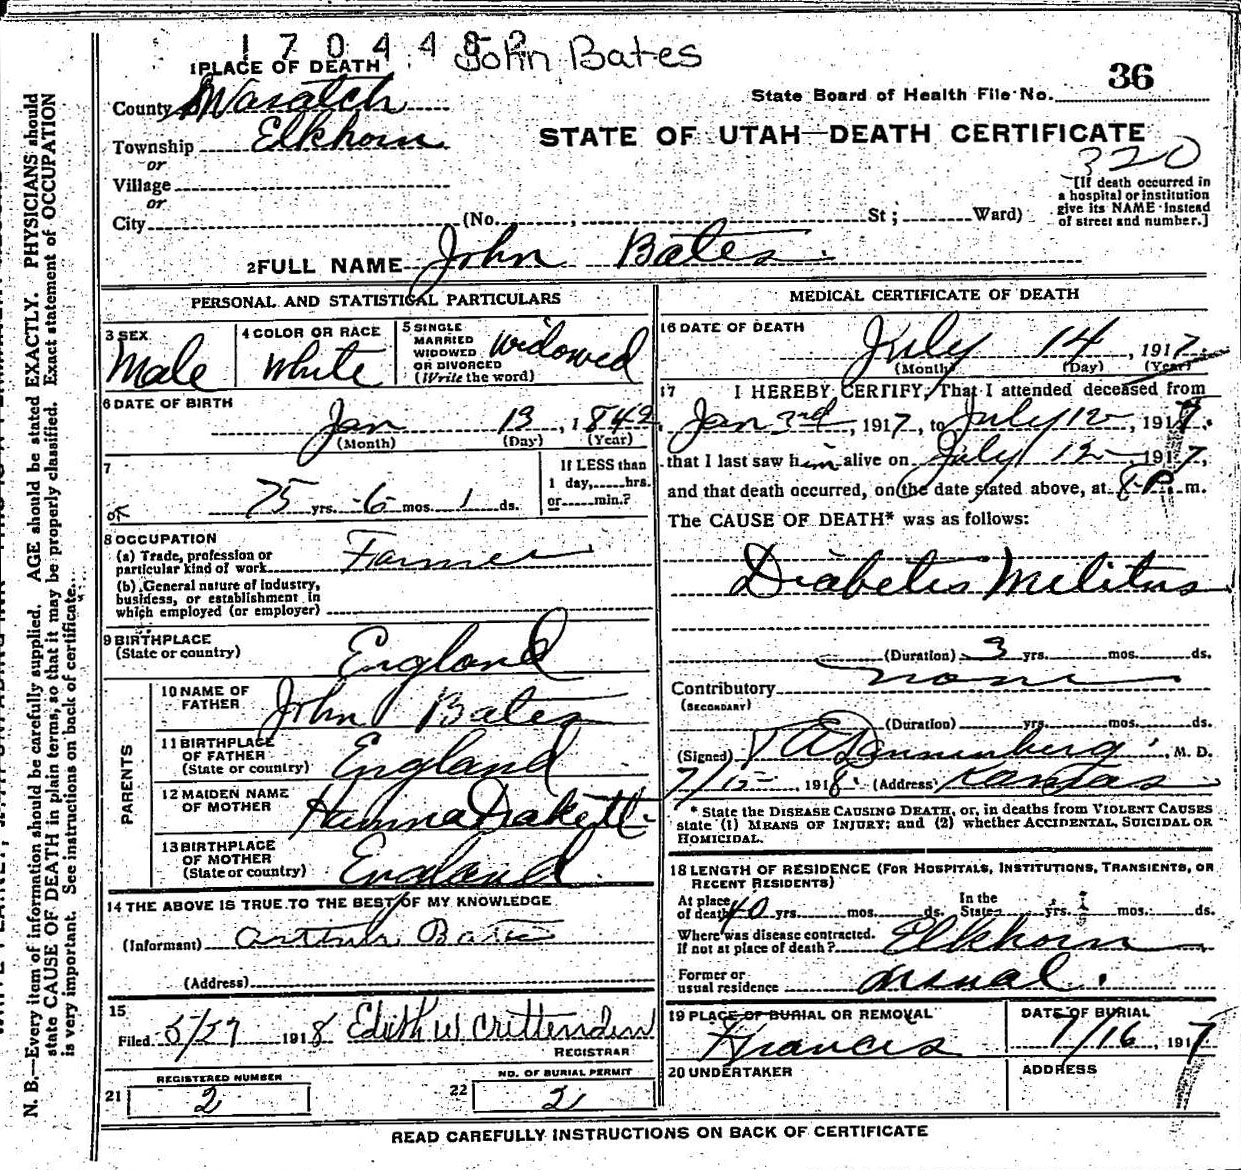 1704482 John Bates
1 PLACE OF DEATH
County Wasatch
Township Elkhorn
or
Village
or
City (No. ; St; Ward)
State Board of Health File No. 36
STATE OF UTAH—DEATH CERTIFICATE
320
[If death occurred in
a hospital or institution
give its NAME instead
of street and number.]
2 FULL NAME John Bates
PERSONAL AND STATISTICAL PARTICULARS
3 SEX
Male
4 COLOR OR RACE
White
5 SINGLE
MARRIED
WIDOWED
OR DIVORCED
(Write the word)
widowed
6 DATE OF BIRTH
Jan 13, 1842
(Month) (Day) (Year)
7
75 yrs. 6 mos. 1 ds.
If LESS than
1 day, hrs.
or min.?
8 OCCUPATION
(a) Trade, profession or
particular kind of work Farmer
(b) General nature of industry,
business, or establishment in
which employed (or employer)
9 BIRTHPLACE
(State or country) England
PARENTS
10 NAME OF
FATHER John Bates
11 BIRTHPLACE
OF FATHER
(State or country) England
12 MAIDEN NAME
OF MOTHER Hannna
13 BIRTHPLACE
OF MOTHER
(State or country) England
14 THE ABOVE IS TRUE TO THE BEST OF MY KNOWLEDGE
(Informant) Arthur Bates
(Address)
15
Filed 5/29 1918 Edith W Crittenden
REGISTRAR
21 REGISTERED NUMBER
2
22 NO. OF BURIAL PERMIT
2
MEDICAL CERTIFICATE OF DEATH
16 DATE OF DEATH
July 14, 1917
(Month) (Day) (Year)
17 I HEREBY CERTIFY, That I attended deceased from
Jan 3rd, 1917, to July 12, 1917.
that I last saw him alive on July 12 1917,
and that death occurred, on the date stated above, at 8 P. m.
The CAUSE OF DEATH* was as follows:
Diabetis Melitus
(Duration) 3 yrs. mos. ds.
Contributory none
(SECONDARY)
(Duration) yrs. mos. ds.
(Signed) Dannenberg, M. D.
7/15, 1918 (Address) Kamas
* State the DISEASE CAUSING DEATH, or, in deaths from VIOLENT CAUSES
state (1) MEANS OF INJURY; and (2) whether ACCIDENTAL, SUICIDAL OR
HOMICIDAL.
18 LENGTH OF RESIDENCE (FOR HOSPITALS, INSTITUTIONS, TRANSIENTS, OR
RECENT RESIDENTS)
At place
of death 40 yrs. mos. ds.
In the
State yrs. mos. ds.
Where was disease contracted.
If not at place of death? Elkhorn
Former or
usual residence usual.
19 PLACE OF BURIAL OR REMOVAL
Francis
DATE OF BURIAL
7/16, 1917
20 UNDERTAKER
ADDRESS
READ CAREFULLY INSTRUCTIONS ON BACK OF CERTIFICATE
N. B.—Every item of information should be carefully supplied. AGE should be stated EXACTLY. PHYSICIANS should
state CAUSE OF DEATH in plain terms, so that it may be properly classified. Exact statement of OCCUPATION
is very important. See instructions on back of certificate.